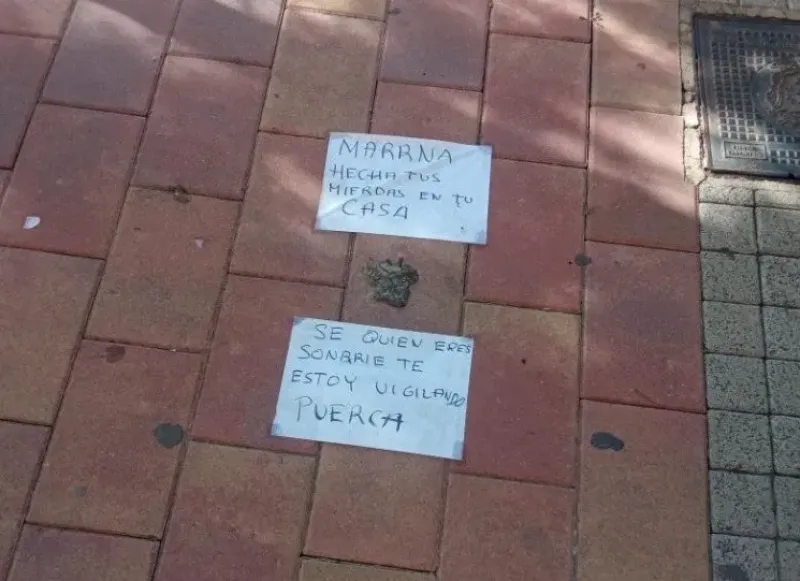 MARRNA
HECHA TUS
MIERDAS EN TU
CASA
SE QUIEN ERES
SONRRIE TE
ESTOY VIGILANDO
PUERCA